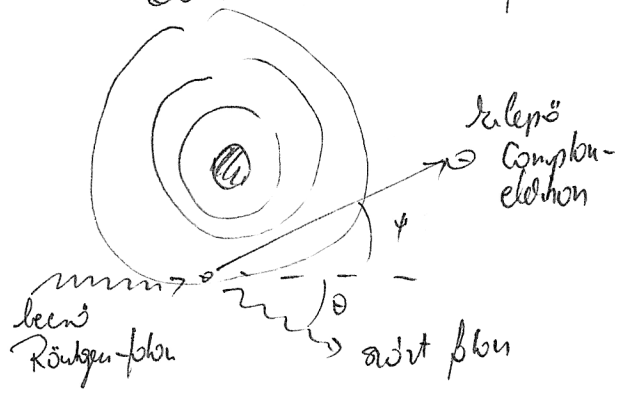 kilépő
Compton-
elektron
ψ
θ
beeső
Röntgen-foton
szórt foton